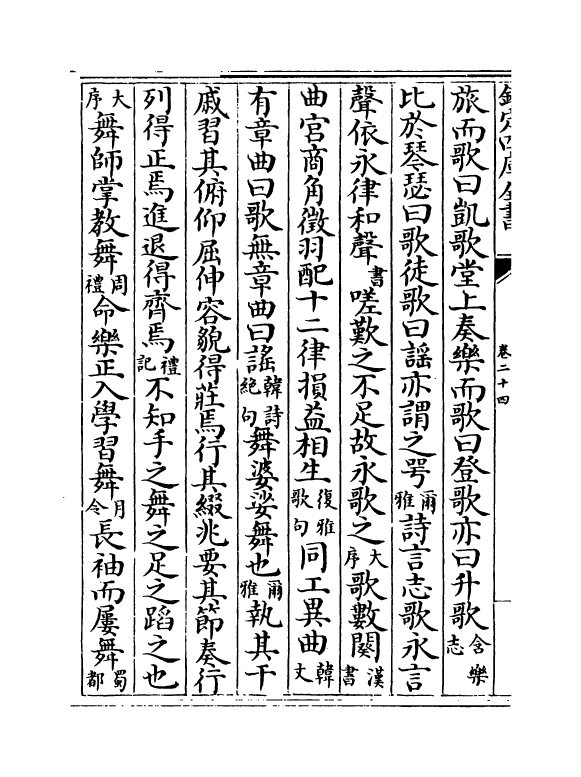 欽定四庫全書
卷二十四
旅而歌曰凱歌堂上奏樂而歌曰登歌亦曰升歌含樂志
比於琴瑟曰歌徒歌曰謡亦謂之咢爾雅詩言志歌永言
聲依永律和聲書嗟歎之不足故永歌之大序歌數闋漢書
曲宫商角徵羽配十二律損益相生復雅歌句同工異曲韓文
有章曲曰歌無章曲曰謡韓詩絶句舞婆娑舞也爾雅執其干
戚習其俯仰屈伸容貌得莊焉行其綴兆要其節奏行
列得正焉進退得齊焉禮記不知手之舞之足之蹈之也
大序舞師掌教舞周禮命樂正入學習舞月令長袖而屢舞蜀都